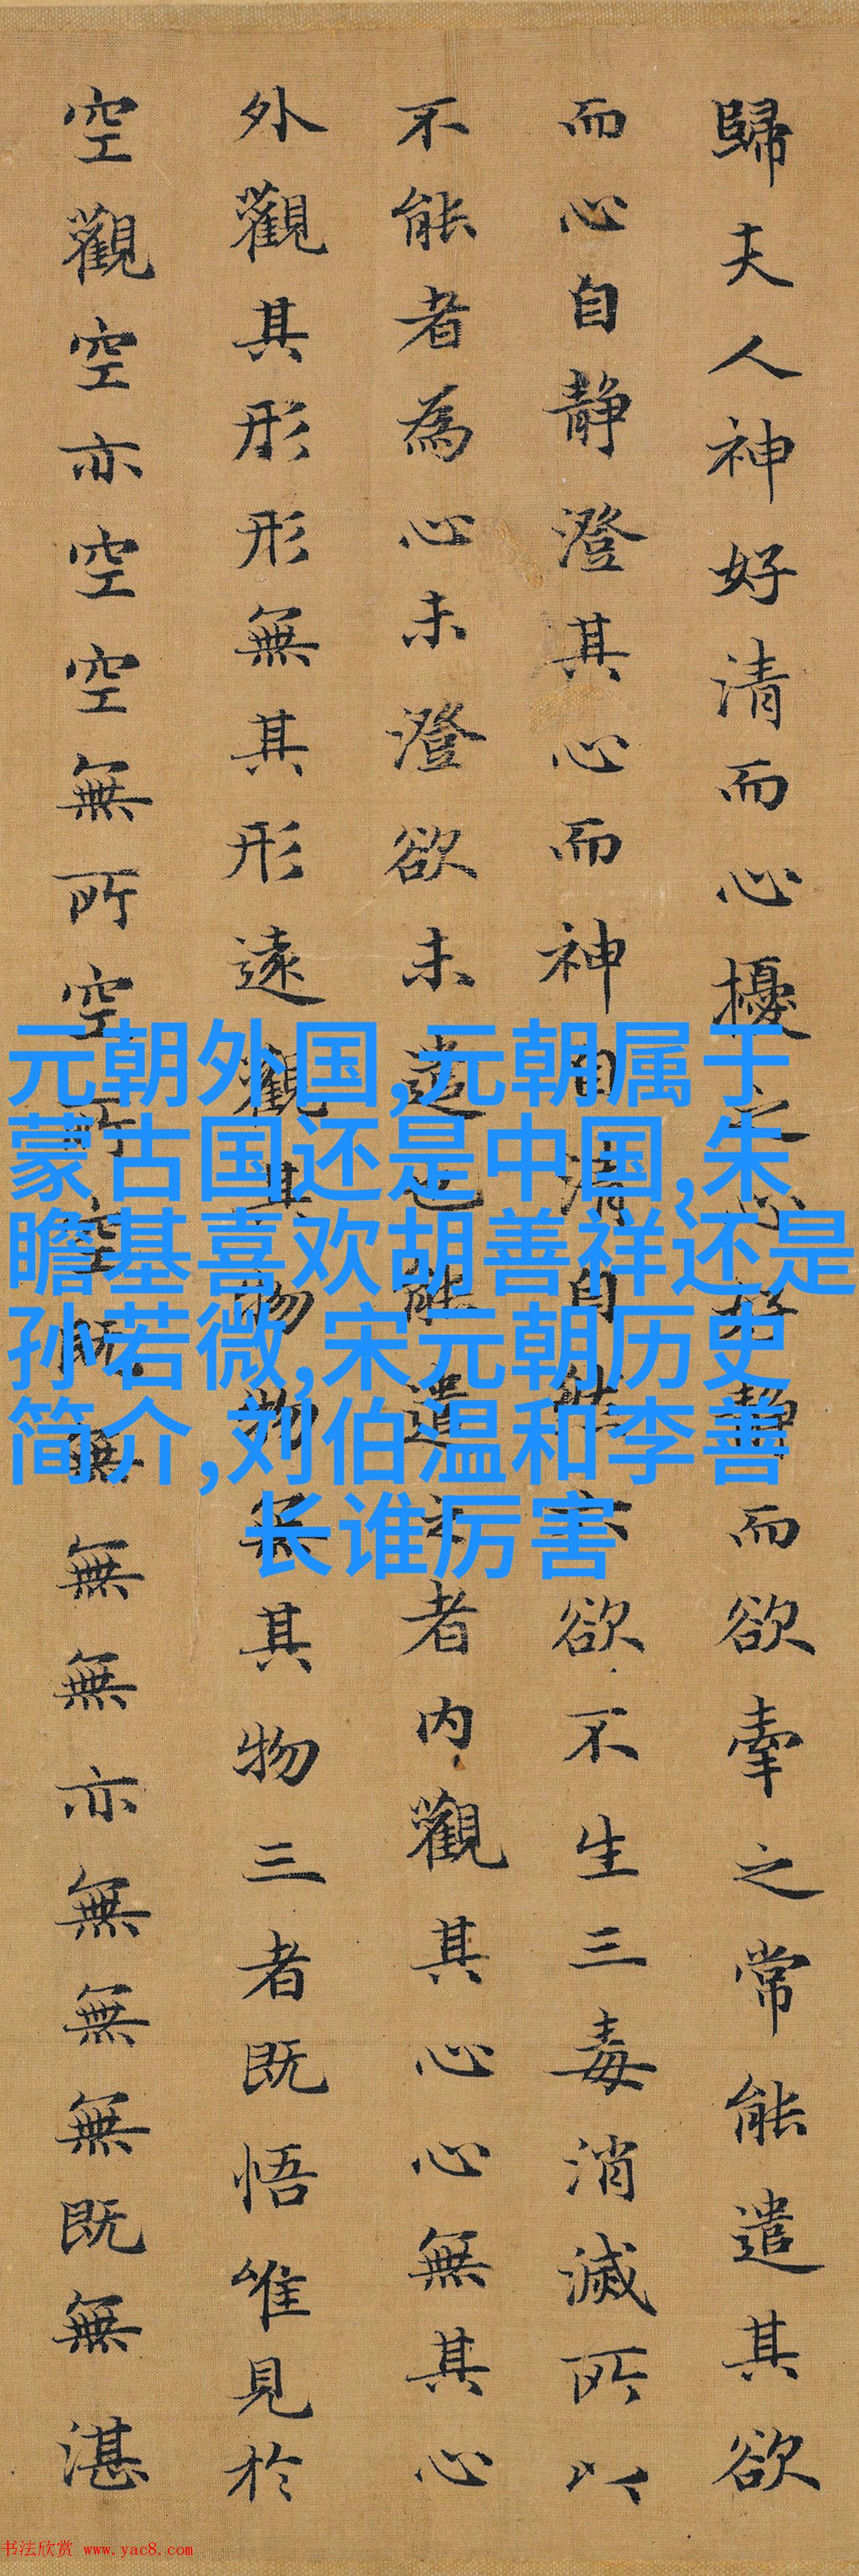 歸夫人神好清而心擾之心好静而欲牽之常能遣其欲
而心自静澄其心而神自清自然六欲不生三毒消滅所以
不能者為心未澄欲未遣也能遣之者内觀其心心無其心
外觀其形形無其形遠觀其物物無其物三者既悟唯見於
空觀空亦空空無所空所空既無無無亦無無無既無湛
元朝外国,元朝属于
蒙古国还是中国,朱
瞻基喜欢胡善祥还是
孙若微,宋元朝历史
简介,刘伯温和李善
长谁厉害
书法欣赏 www.yac8.com